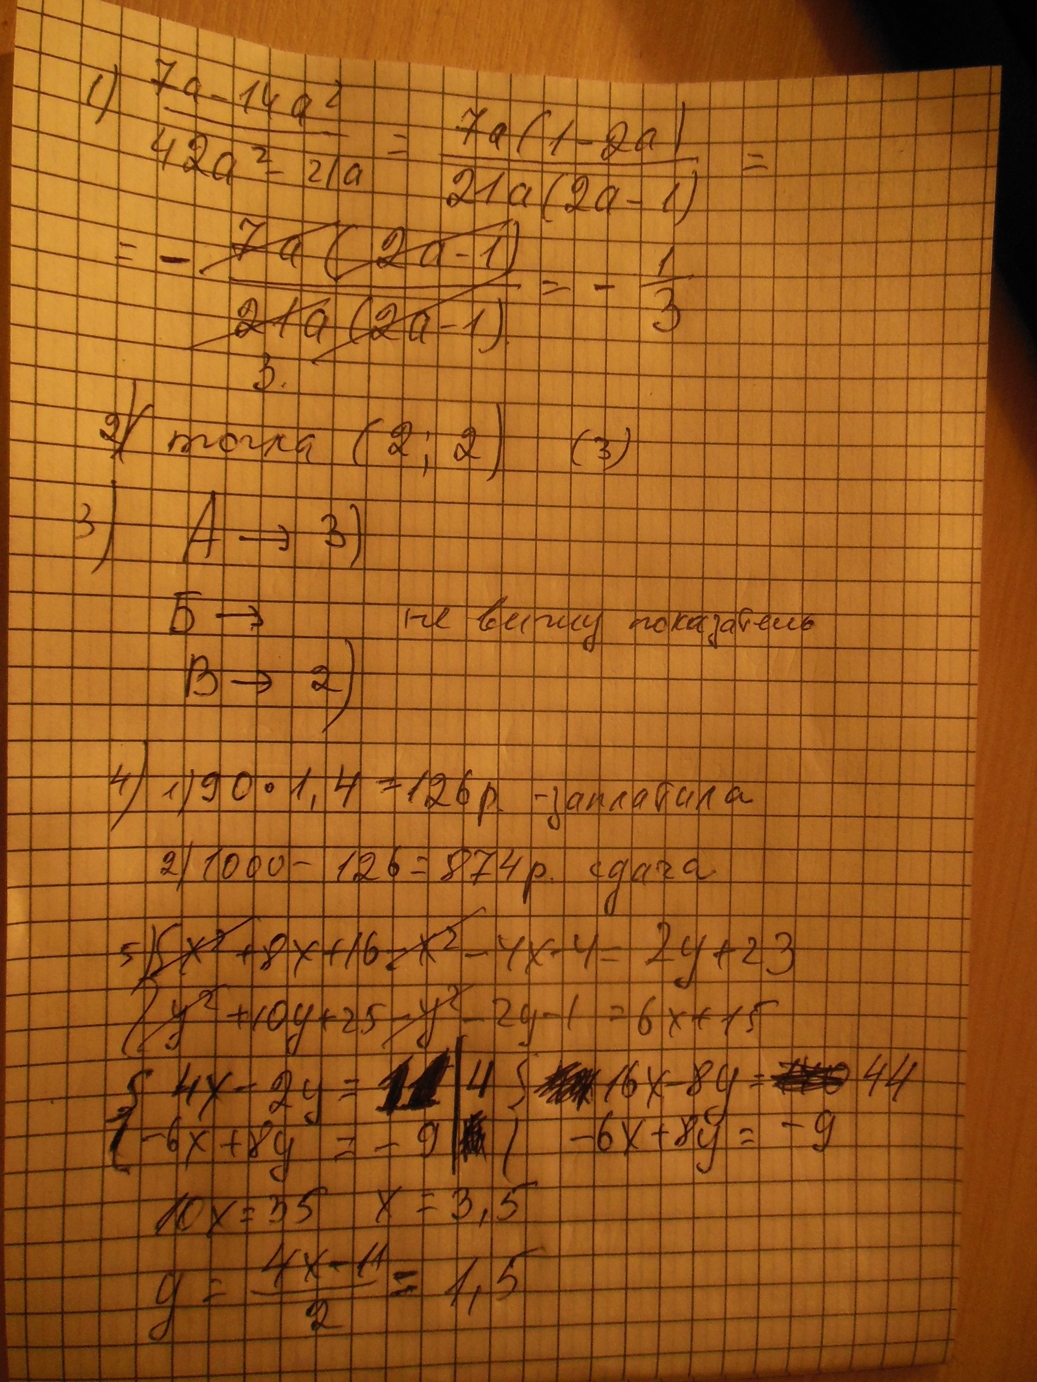 1) (7a - 14a²)/(42a² - 21a) = (7a(1 - 2a))/(21a(2a - 1)) =
= - (7a(2a - 1))/(21a(2a - 1)) = - 1/3
3.
2) точка (2; 2) (3)
3) А → 3)
Б → не вижу показатель
В → 2)
4) 1) 90 · 1,4 = 126 р. - заплатила
2) 1000 - 126 = 874 р. сдача
5) { x² + 8x + 16 - x² - 4x - 4 = 2y + 23
{ y² + 10y + 25 - y² - 2y - 1 = 6x + 15
{ 4x - 2y = 11 | 4 { 16x - 8y = 44
{ -6x + 8y = -9 | { -6x + 8y = -9
10x = 35 x = 3,5
y = (4x - 11)/2 = 1,5